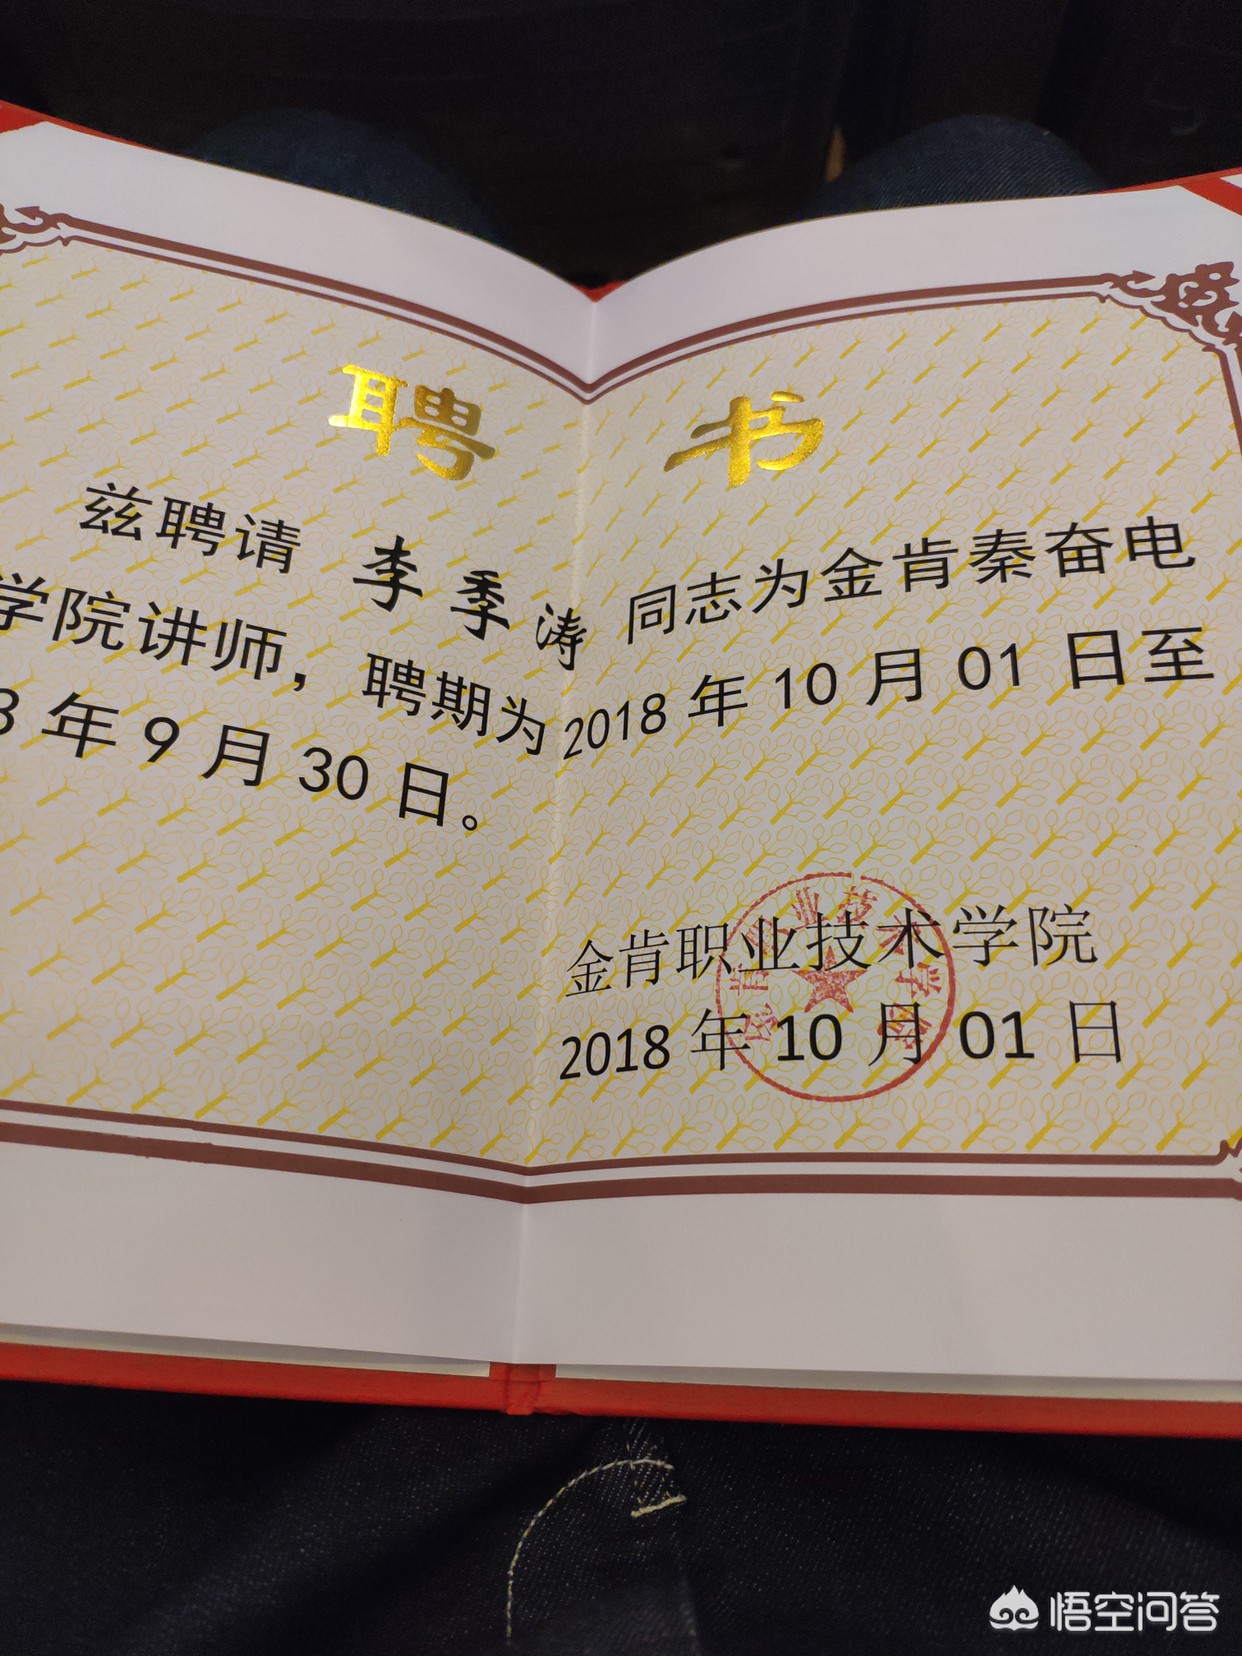 聘书
兹聘请 李季涛 同志为金肯秦奋电
学院讲师，聘期为 2018 年 10 月 01 日至
8 年 9 月 30 日。
金肯职业技术学院
2018 年 10 月 01 日
金肯职业技术学院
悟空问答